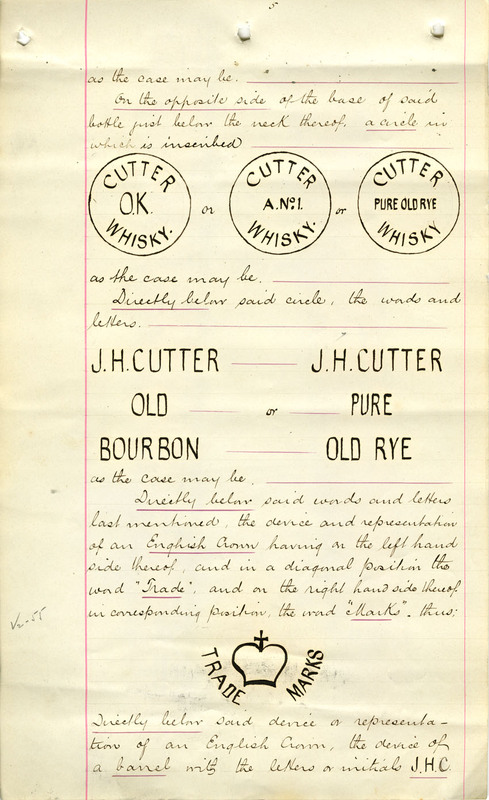 5
as the case may be.
On the opposite side of the base of said
bottle just below the neck thereof, a circle in
which is inscribed
CUTTER O.K. WHISKY. or CUTTER A.No1. WHISKY. or CUTTER PURE OLD RYE WHISKY
as the case may be.
Directly below said circle, the words and
letters.
J.H.CUTTER J.H.CUTTER
OLD or PURE
BOURBON OLD RYE
as the case may be.
Directly below said words and letters
last mentioned, the device and representation
of an English Crown having on the left hand
side thereof, and in a diagonal position the
word "Trade", and on the right hand side thereof
in corresponding position, the word "Marks". thus;
TRADE MARKS
Directly below said device or representa-
tion of an English Crown, the device of
a barrel with the letters or initials J.H.C.